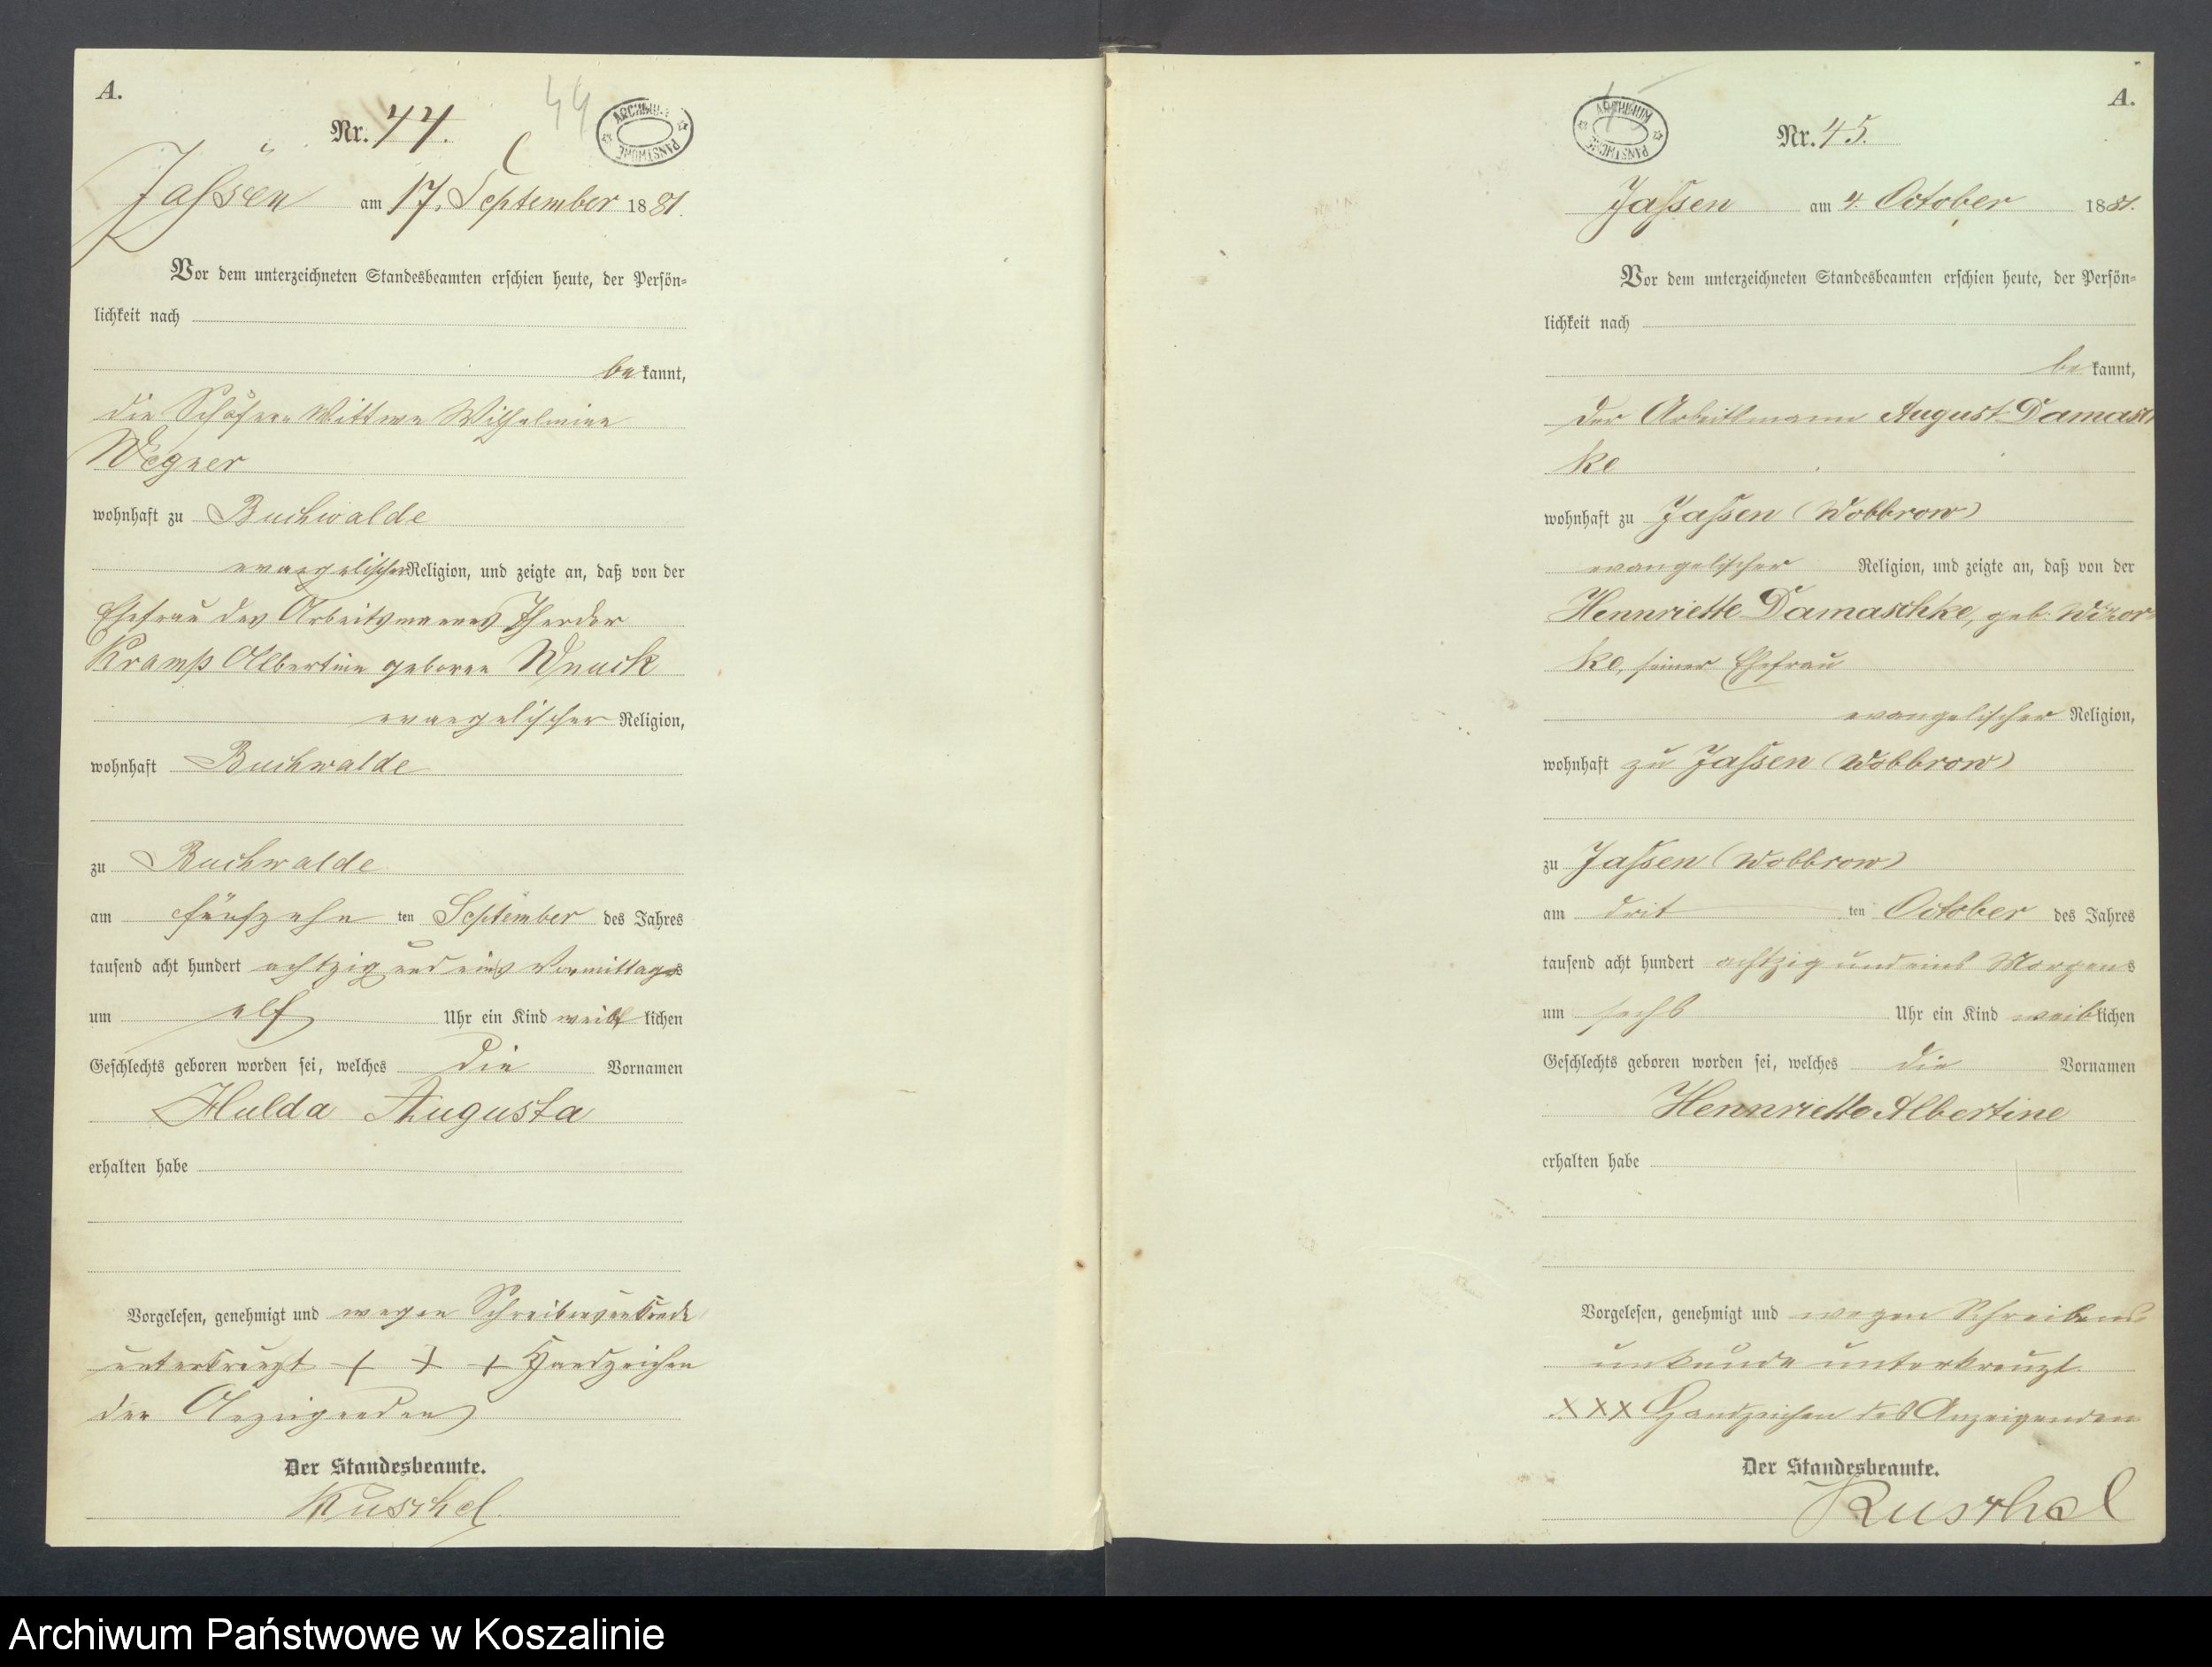 A.
Nr. 44.
44
ARCHIWUM PAŃSTWOWE
Jassen am 17. September 1881.
Vor dem unterzeichneten Standesbeamten erschien heute, der Persön-
lichkeit nach
bekannt,
die Schäfer Wittwe Wilhelmine
Wegner
wohnhaft zu Buchwalde
evangelischer Religion, und zeigte an, daß von der
Ehefrau des Arbeitsmannes
Albertine geborene
evangelischer Religion,
wohnhaft Buchwalde
zu Buchwalde
am fünfzehn ten September des Jahres
tausend acht hundert achtzig und eins Vormittags
um elf Uhr ein Kind weiblichen
Geschlechts geboren worden sei, welches die Vornamen
Hulda Augusta
erhalten habe
Vorgelesen, genehmigt und wegen Schreibensunkunde
unterkreuzt + + + Handzeichen
der Anzeigenden
Der Standesbeamte.
Kuschel.
ARCHIWUM PAŃSTWOWE
A.
Nr. 45.
Jassen am 4. October 1881.
Vor dem unterzeichneten Standesbeamten erschien heute, der Persön-
lichkeit nach
bekannt,
der Arbeitsmann August Damasch
ke
wohnhaft zu Jassen (Wobbrow)
evangelischer Religion, und zeigte an, daß von der
Hennriette Damaschke, geb.
ke, seiner Ehefrau
evangelischer Religion,
wohnhaft zu Jassen (Wobbrow)
zu Jassen (Wobbrow)
am drit ten October des Jahres
tausend acht hundert achtzig und eins Morgens
um sechs Uhr ein Kind weiblichen
Geschlechts geboren worden sei, welches die Vornamen
Hennriette Albertine
erhalten habe
Vorgelesen, genehmigt und wegen Schreibens-
unkunde unterkreuzt.
XXX Handzeichen des Anzeigenden
Der Standesbeamte.
Kuschel
Archiwum Państwowe w Koszalinie